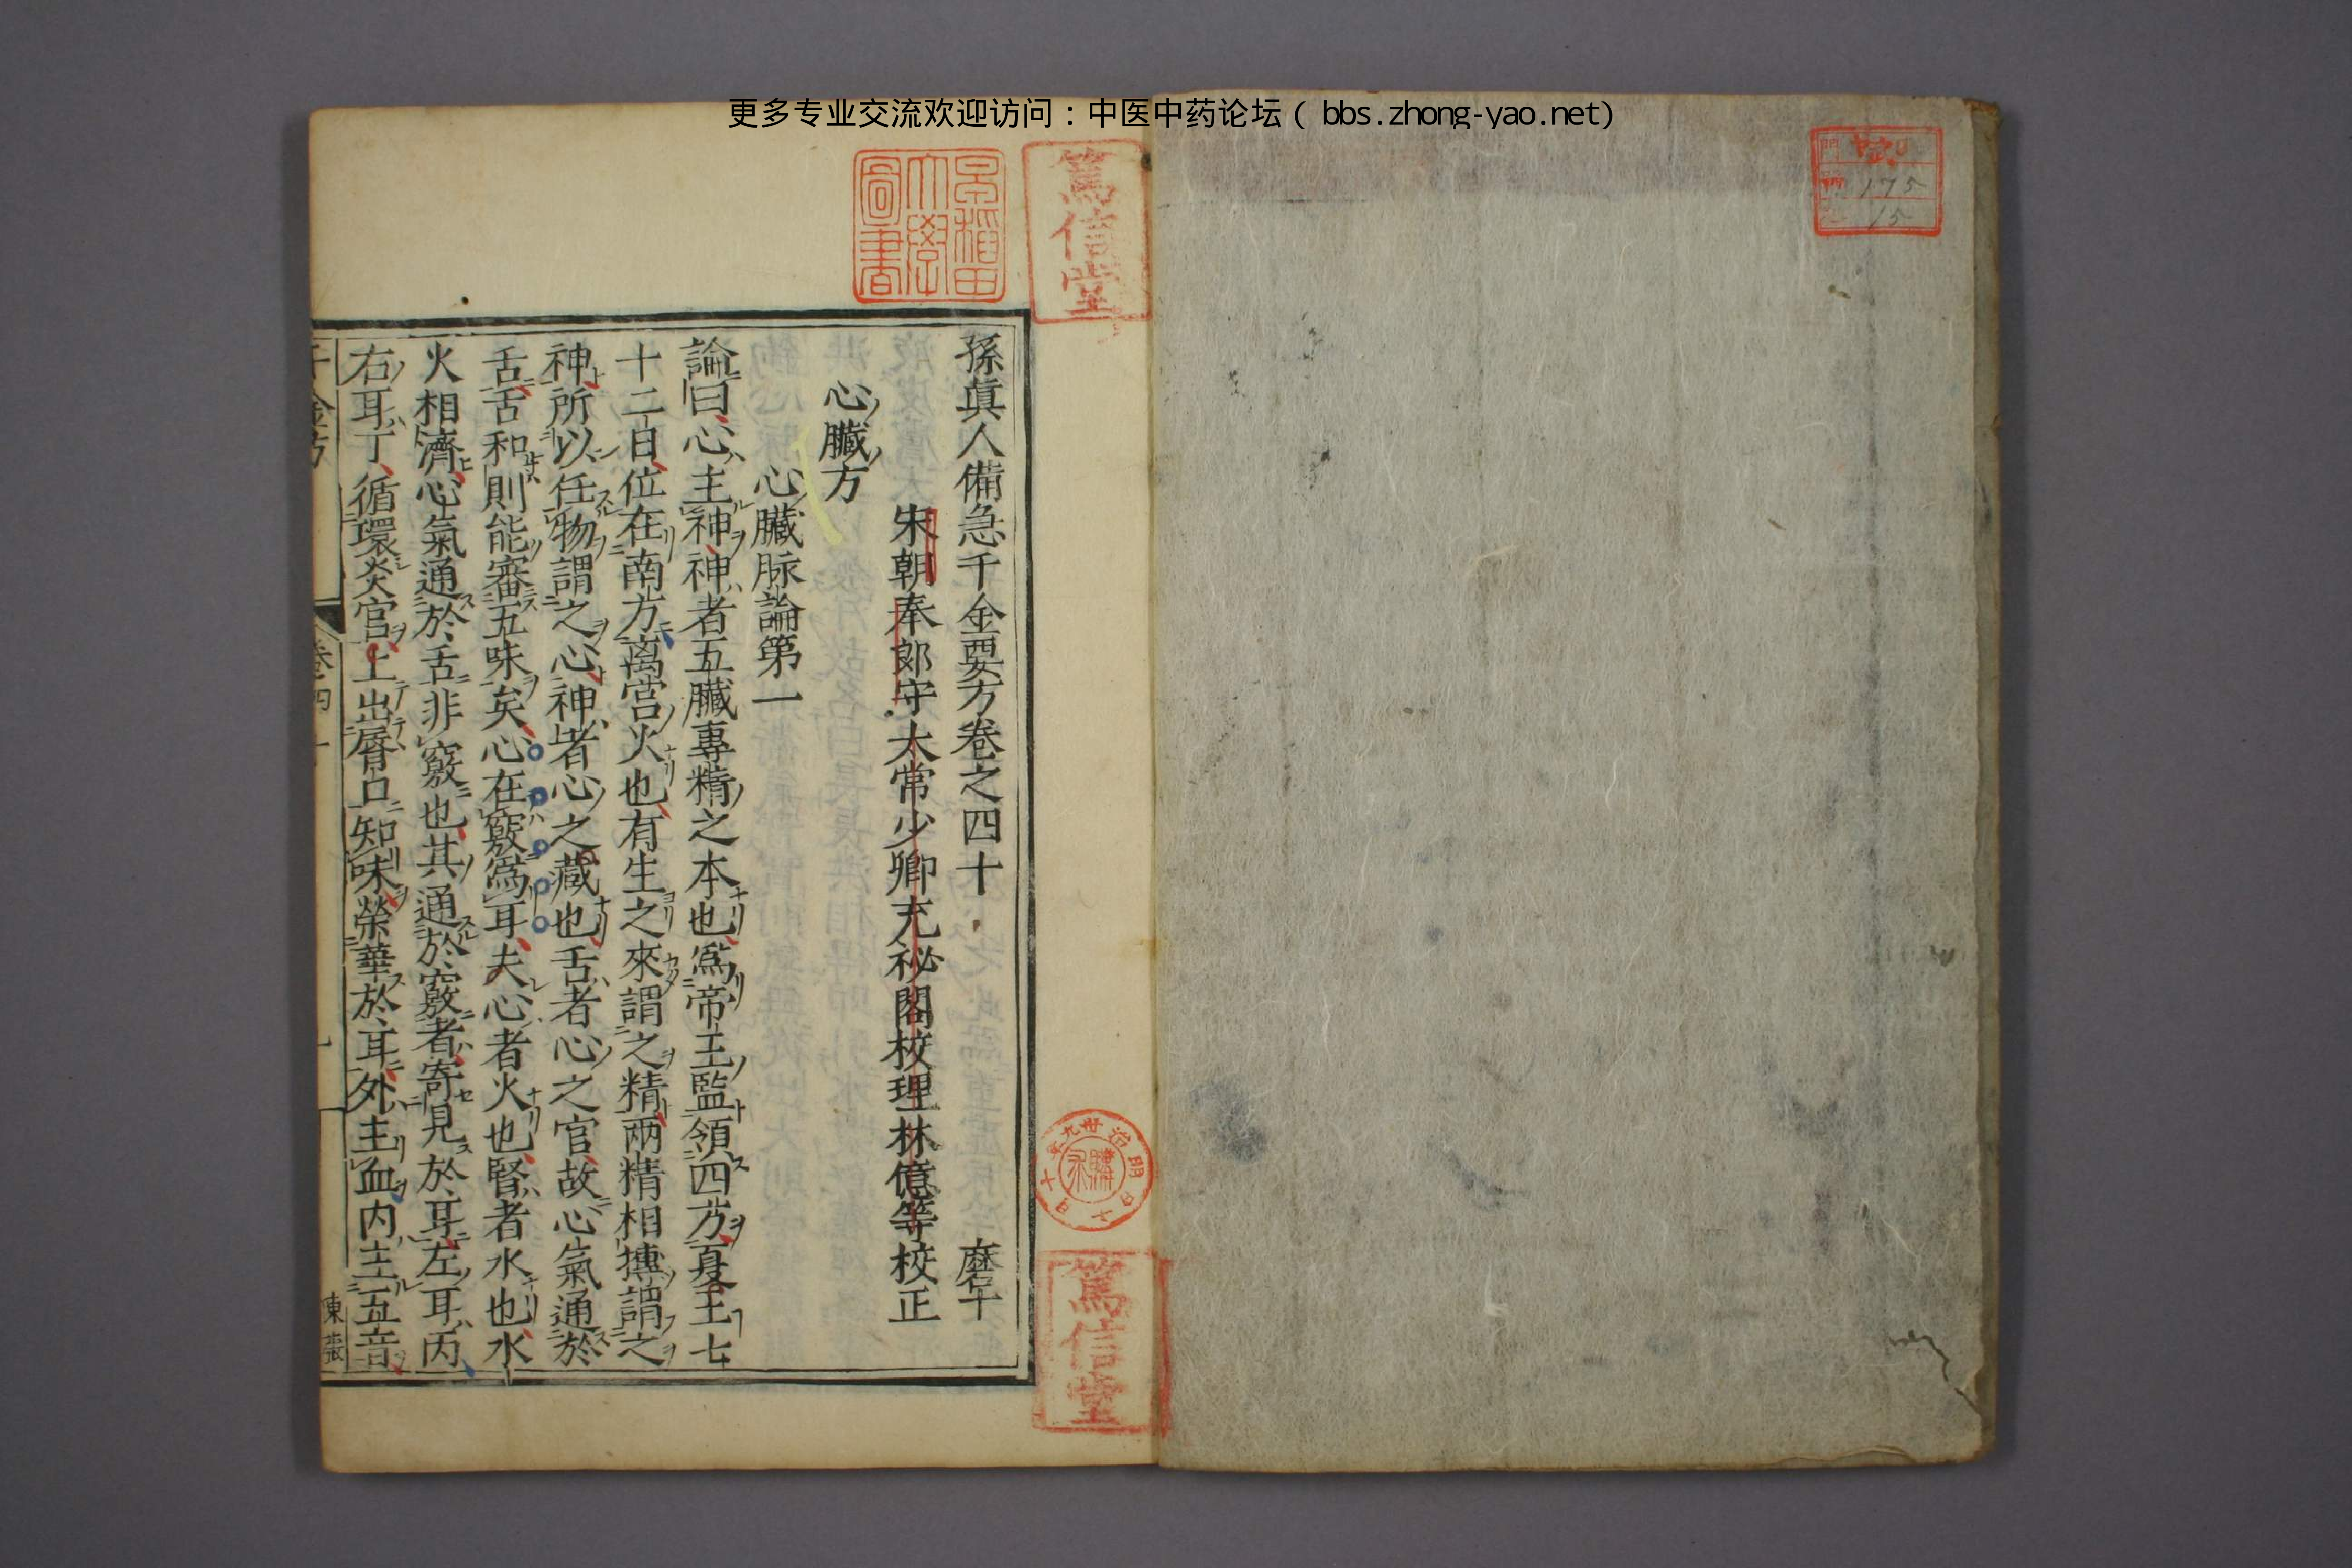 更多专业交流欢迎访问：中医中药论坛（ bbs.zhong-yao.net)
門
175
15
篤信堂
早稲田大學圖書
明治卅九年十月十七日購求
篤信堂
孫真人備急千金要方卷之四十 磨十
宋朝奉郎守太常少卿充祕閣校理林億等校正
心臟方
心臟脉論第一
論曰心主神神者五臟專精之本也爲帝王監領四方夏王七
十二日位在南方离宫火也有生之來謂之精兩精相摶謂之
神所以任物謂之心神者心之藏也舌者心之官故心氣通於
舌舌和則能審五味矣心在竅爲耳夫心者火也腎者水也水
火相濟心氣通於舌非竅也其通於竅者寄見於耳左耳丙
右耳丁循環炎宫上出脣口知味榮華於耳外主血内主五音
千金方 卷四十
東張